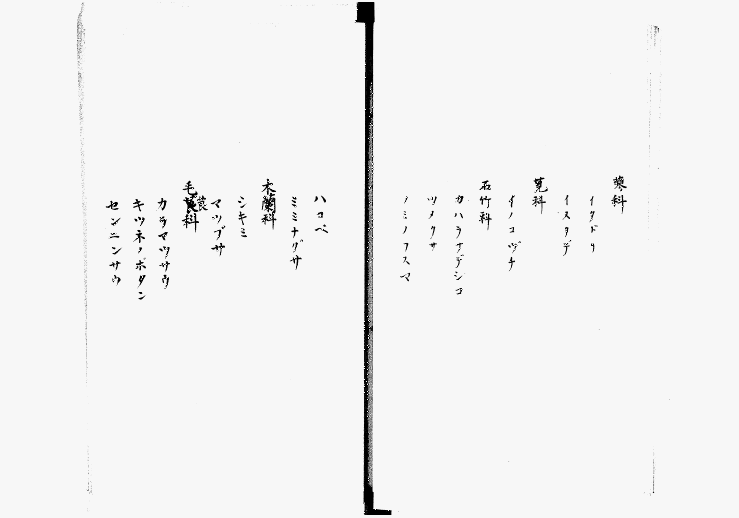 蓼科
イタドリ
イヌタデ
莧科
イノコヅチ
石竹科
カハラナデシコ
ツメクサ
ノミノフスマ
ハコベ
ミミナグサ
木蘭科
シキミ
マツブサ
毛茛科
カラマツサウ
キツネノボタン
センニンサウ